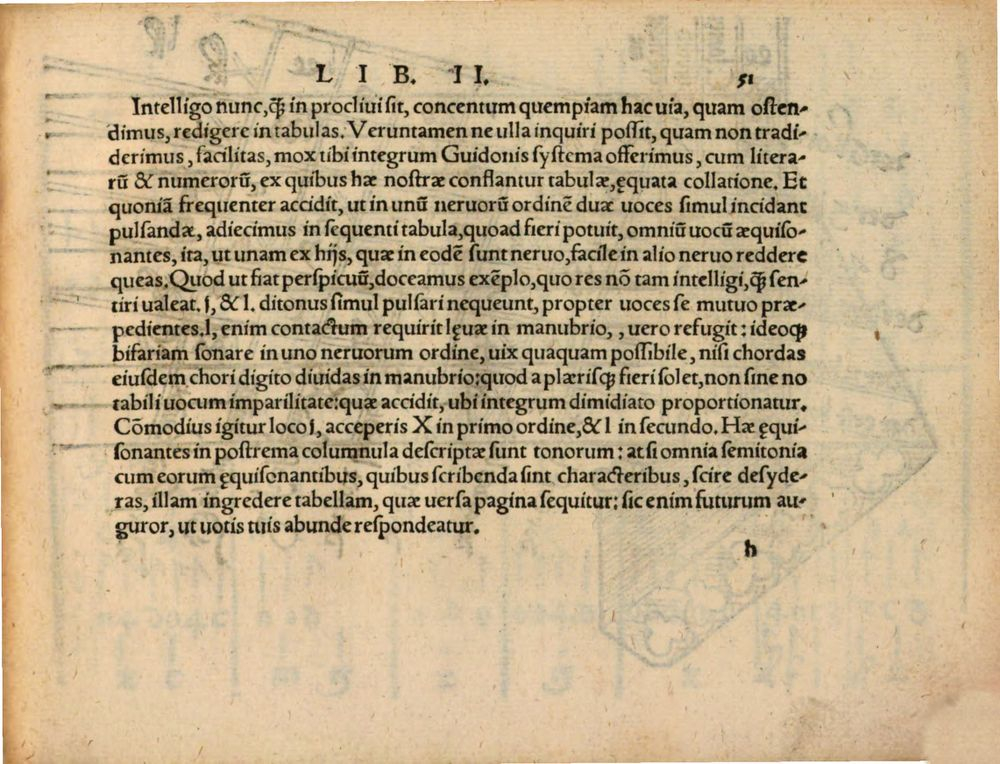 LIB. II. 51
Intelligo nunc, ꝙ̃ in procliui ſit, concentum quempiam hac uia, quam oſten-
dimus, redigere in tabulas. Veruntamen ne ulla inquiri poſſit, quam non tradi-
derimus, facilitas, mox tibi integrum Guidonis ſyſtema offerimus, cum litera-
rũ & numerorũ, ex quibus hæ noſtræ conflantur tabulæ, ęquata collatione. Et
quoniã frequenter accidit, ut in unũ neruorũ ordinẽ duæ uoces ſimul incidant
pulſandæ, adiecimus in ſequenti tabula, quoad fieri potuit, omniũ uocũ æquiſo-
nantes, ita, ut unam ex hijs, quæ in eodẽ ſunt neruo, facile in alio neruo reddere
queas. Quod ut fiat perſpicuũ, doceamus exẽplo, quo res nõ tam intelligi, ꝙ̃ ſen-
tiri ualeat. ſ, & l. ditonus ſimul pulſari nequeunt, propter uoces ſe mutuo præ-
pedientes. l, enim contactum requirit lęuæ in manubrio, , uero refugit: ideoqꝫ
bifariam ſonare in uno neruorum ordine, uix quaquam poſſibile, niſi chordas
eiuſdem chori digito diuidas in manubrio: quod a plæriſqꝫ fieri ſolet, non ſine no
tabili uocum imparilitate: quæ accidit, ubi integrum dimidiato proportionatur.
Cõmodius igitur loco ſ, acceperis X in primo ordine, & l in ſecundo. Hæ ęqui-
ſonantes in poſtrema columnula deſcriptæ ſunt tonorum: at ſi omnia ſemitonia
cum eorum ęquiſonantibus, quibus ſcribenda ſint characteribus, ſcire deſyde-
ras, illam ingredere tabellam, quæ uerſa pagina ſequitur: ſic enim futurum au-
guror, ut uotis tuis abunde reſpondeatur.
h